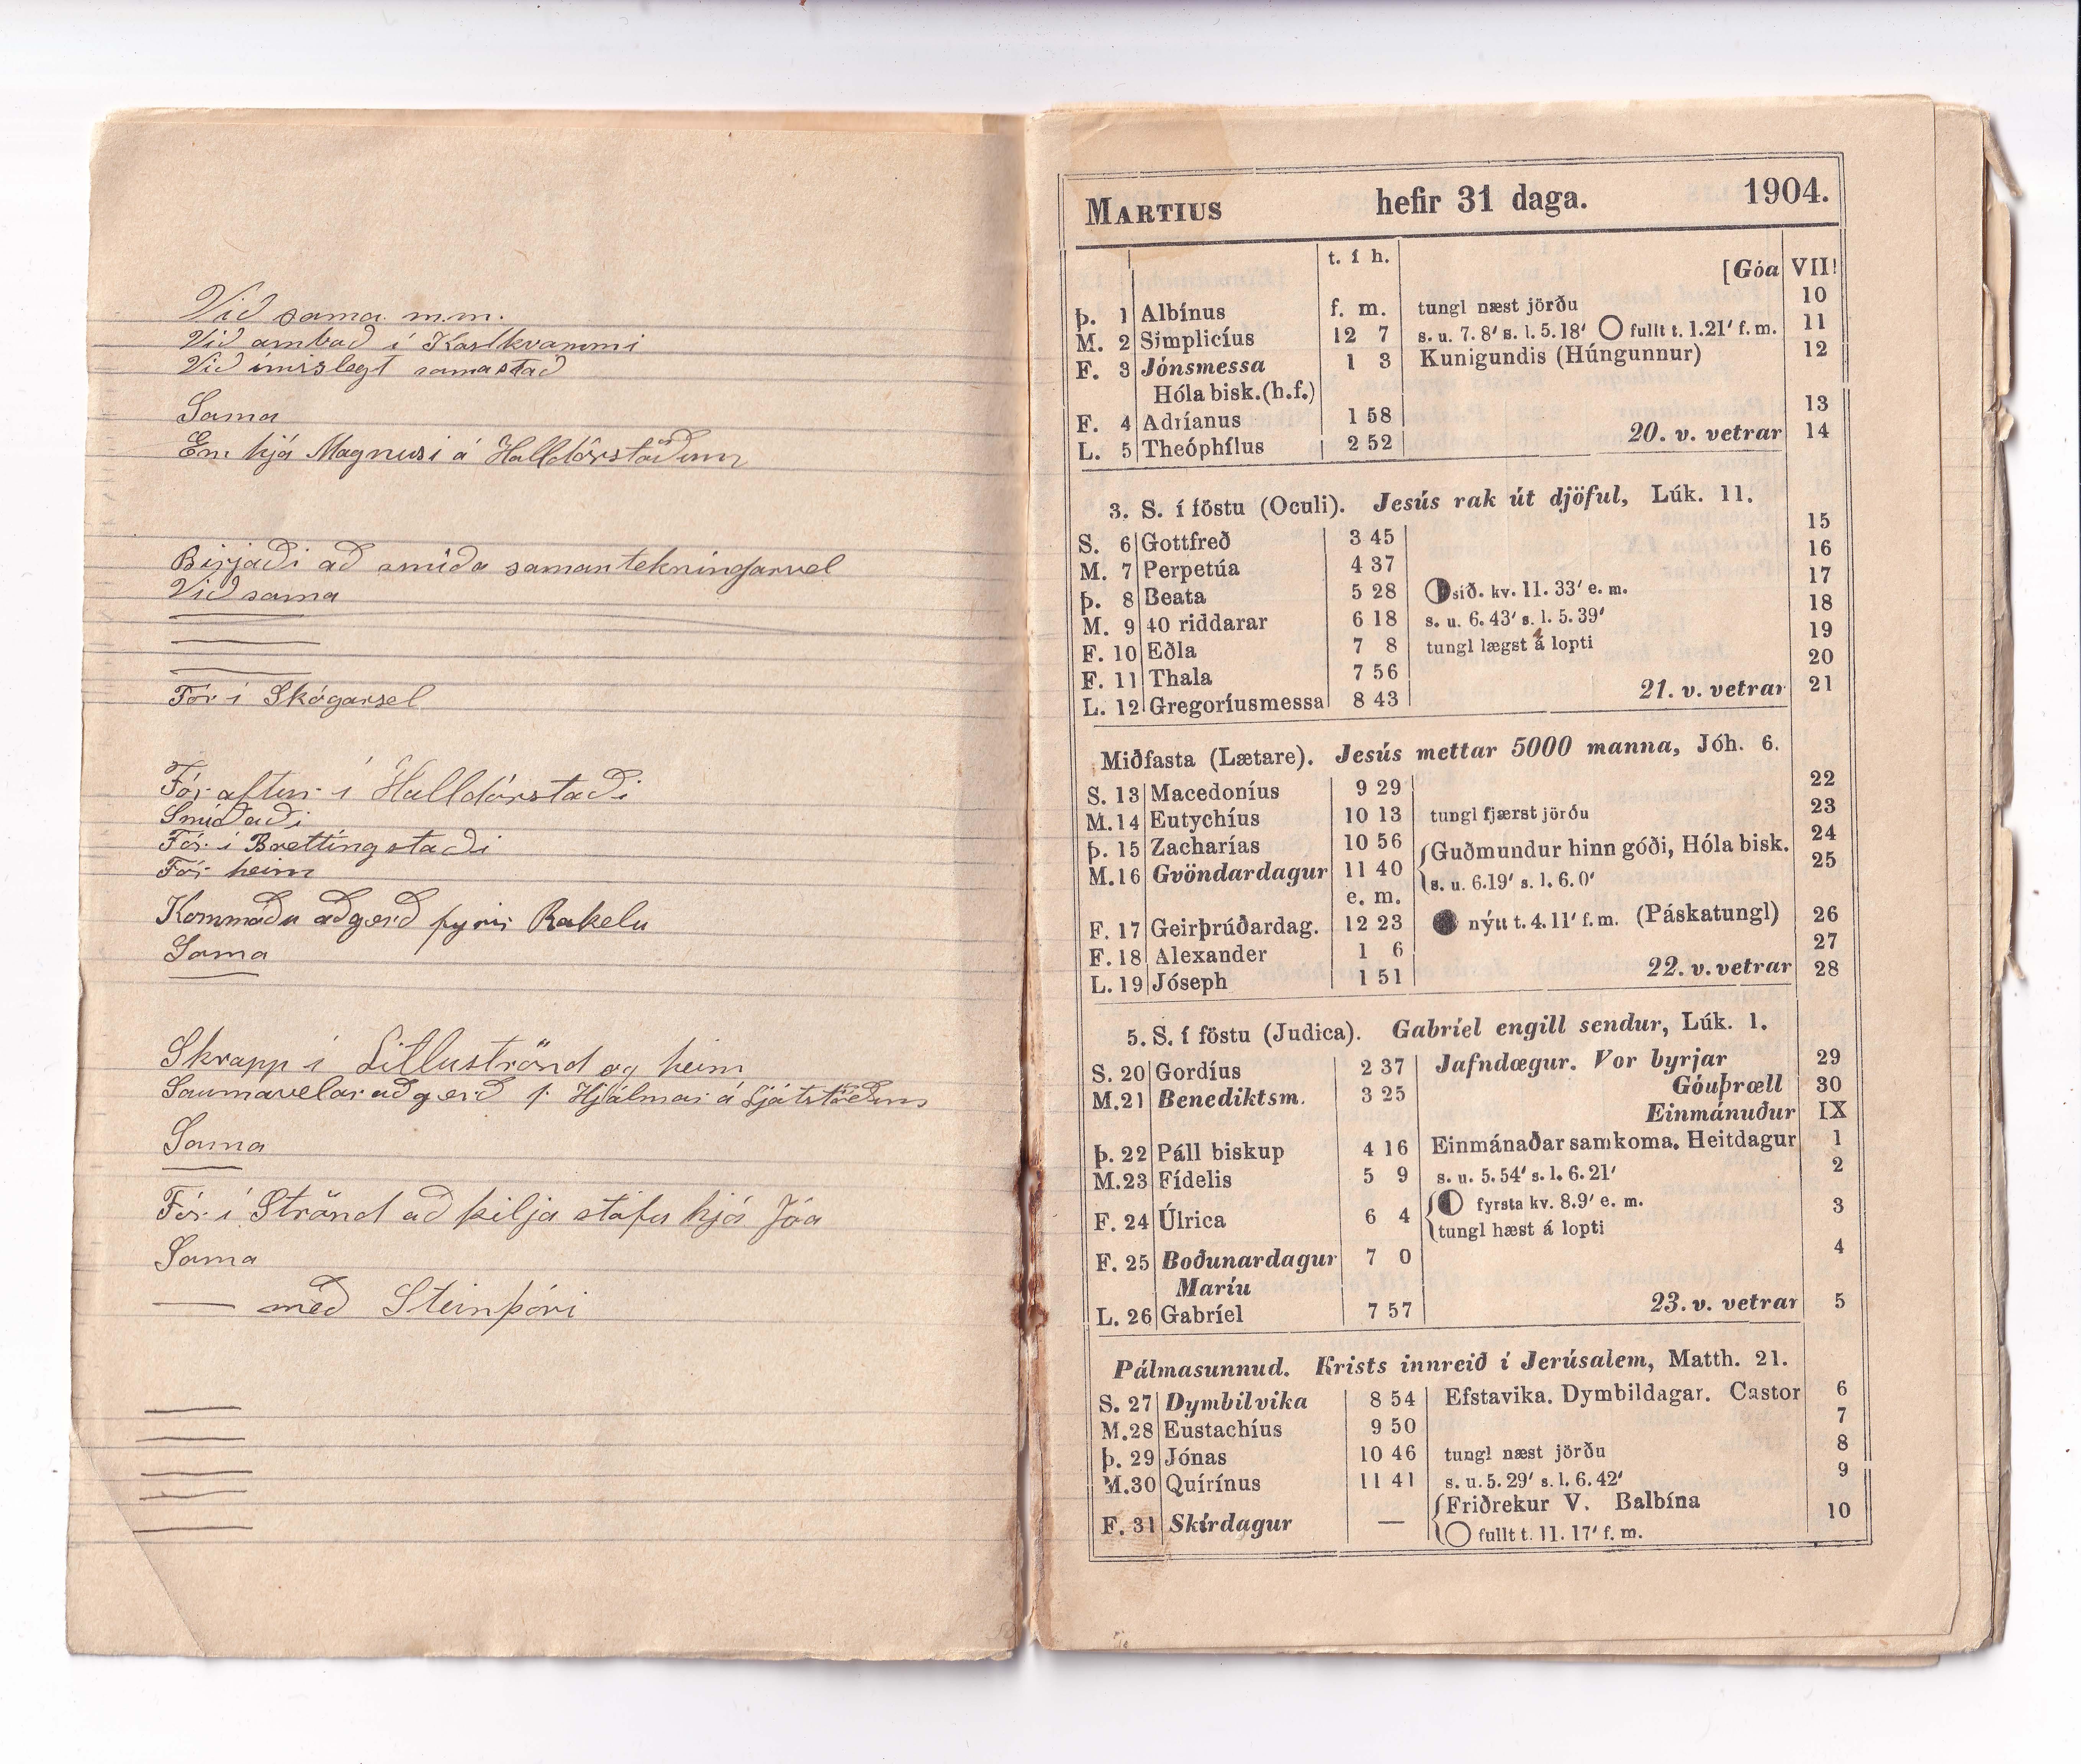 Við sama m.m.
Við ambað í Kasthvammi
Við ímislegt samastað
Sama
En. hjá Magnusi á Halldórstöðum
Birjaði að smíða samantekningarvel
Við sama
Fór í Skógarsel
Fór aftur í Halldórstaði
Smíðaði
Fór í Brettingstaði
Fór heim
Kommóðu aðgerð fyrir Rakelu
Sama
Skrapp í Litluströnd og heim
Saumavelar aðgerð f. Hjálmar á Ljótstöðum
Sama
Fór í Strönd að þilja stofu hjá Jóa
Sama
— með Steinþóri
MARTIUS hefir 31 daga. 1904.
t. í h. [Góa VII!
þ. 1 Albínus f. m. tungl næst jörðu 10
M. 2 Simplicíus 12 7 s. u. 7. 8′ s. l. 5. 18′ ◯ fullt t. 1. 21′ f. m. 11
F. 3 Jónsmessa 1 3 Kunigundis (Húngunnur) 12
Hóla bisk. (h.f.)
F. 4 Adríanus 1 58 13
L. 5 Theóphílus 2 52 20. v. vetrar 14
3. S. í föstu (Oculi). Jesús rak út djöful, Lúk. 11.
S. 6 Gottfreð 3 45 15
M. 7 Perpetúa 4 37 16
þ. 8 Beata 5 28 síð. kv. 11. 33′ e. m. 17
M. 9 40 riddarar 6 18 s. u. 6. 43′ s. l. 5. 39′ 18
F. 10 Eðla 7 8 tungl lægst á lopti 19
F. 11 Thala 7 56 20
L. 12 Gregoríusmessa 8 43 21. v. vetrar 21
Miðfasta (Lætare). Jesús mettar 5000 manna, Jóh. 6.
S. 13 Macedoníus 9 29 22
M. 14 Eutychíus 10 13 tungl fjærst jörðu 23
þ. 15 Zacharías 10 56 Guðmundur hinn góði, Hóla bisk. 24
M. 16 Gvöndardagur 11 40 s. u. 6.19′ s. l. 6. 0′ 25
e. m.
F. 17 Geirþrúðardag. 12 23 ● nýtt t. 4. 11′ f. m. (Páskatungl) 26
F. 18 Alexander 1 6 27
L. 19 Jóseph 1 51 22. v. vetrar 28
5. S. í föstu (Judica). Gabríel engill sendur, Lúk. 1.
S. 20 Gordíus 2 37 Jafndægur. Vor byrjar 29
M. 21 Benediktsm. 3 25 Góuþræll 30
Einmánuður IX
þ. 22 Páll biskup 4 16 Einmánaðarsamkoma. Heitdagur 1
M. 23 Fídelis 5 9 s. u. 5. 54′ s. l. 6. 21′ 2
F. 24 Úlrica 6 4 fyrsta kv. 8. 9′ e. m. 3
tungl hæst á lopti
F. 25 Boðunardagur 7 0 4
Maríu
L. 26 Gabríel 7 57 23. v. vetrar 5
Pálmasunnud. Krists innreið í Jerúsalem, Matth. 21.
S. 27 Dymbilvika 8 54 Efstavika. Dymbildagar. Castor 6
M. 28 Eustachíus 9 50 7
þ. 29 Jónas 10 46 tungl næst jörðu 8
M. 30 Quírínus 11 41 s. u. 5. 29′ s. l. 6. 42′ 9
F. 31 Skírdagur — Friðrekur V. Balbína 10
◯ fullt t. 11. 17′ f. m.